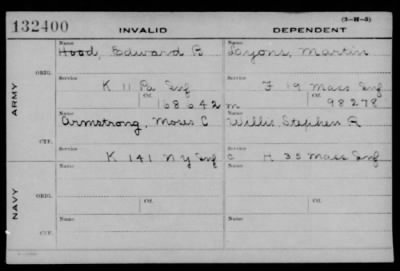 (3-H-3)
132400 INVALID DEPENDENT
Name Name
Hood, Edward B Lyons, Martin
ORIG.
Service Service
K 11 Pa Inf F 19 Mass Inf
Ctf. Ctf.
168642 m 98278
ARMY
Name Name
Armstrong, Moses C Willis Stephen R
CTF.
Service Service
K 141 N Y Inf C H 35 Mass Inf
Name Name
ORIG.
Ctf. Ctf.
NAVY
Name Name
CTF.